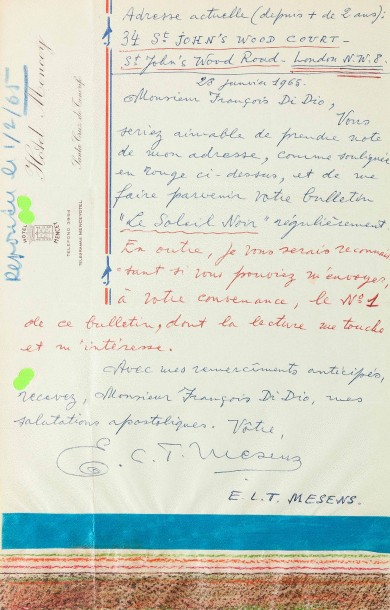 Adresse actuelle (depuis + de 2 ans):
34 St JOHN'S WOOD COURT –
St John's Wood Road – London N.W.8.
28 janvier 1965.
Monsieur François Di Dio,
Vous
seriez aimable de prendre note
de mon adresse, comme soulignée
en rouge ci-dessus, et de me
faire parvenir votre bulletin
"Le Soleil Noir" régulièrement
En outre, je vous serais reconnais-
-sant si vous pouviez m'envoyer,
à votre convenance, le No 1
de ce bulletin, dont la lecture me touche
et m'intéresse.
Avec mes remerciments anticipés,
recevez, Monsieur François Di Dio, mes
salutations apostoliques. Vôtre,
E. L. T. Mesens
E. L. T. MESENS.
Répondu le 1/2/65
Hôtel Mencey
Santa Cruz de Tenerife
HOTEL MENCEY
TELEFONO
TELEGRAMAS MENCEYOTEL